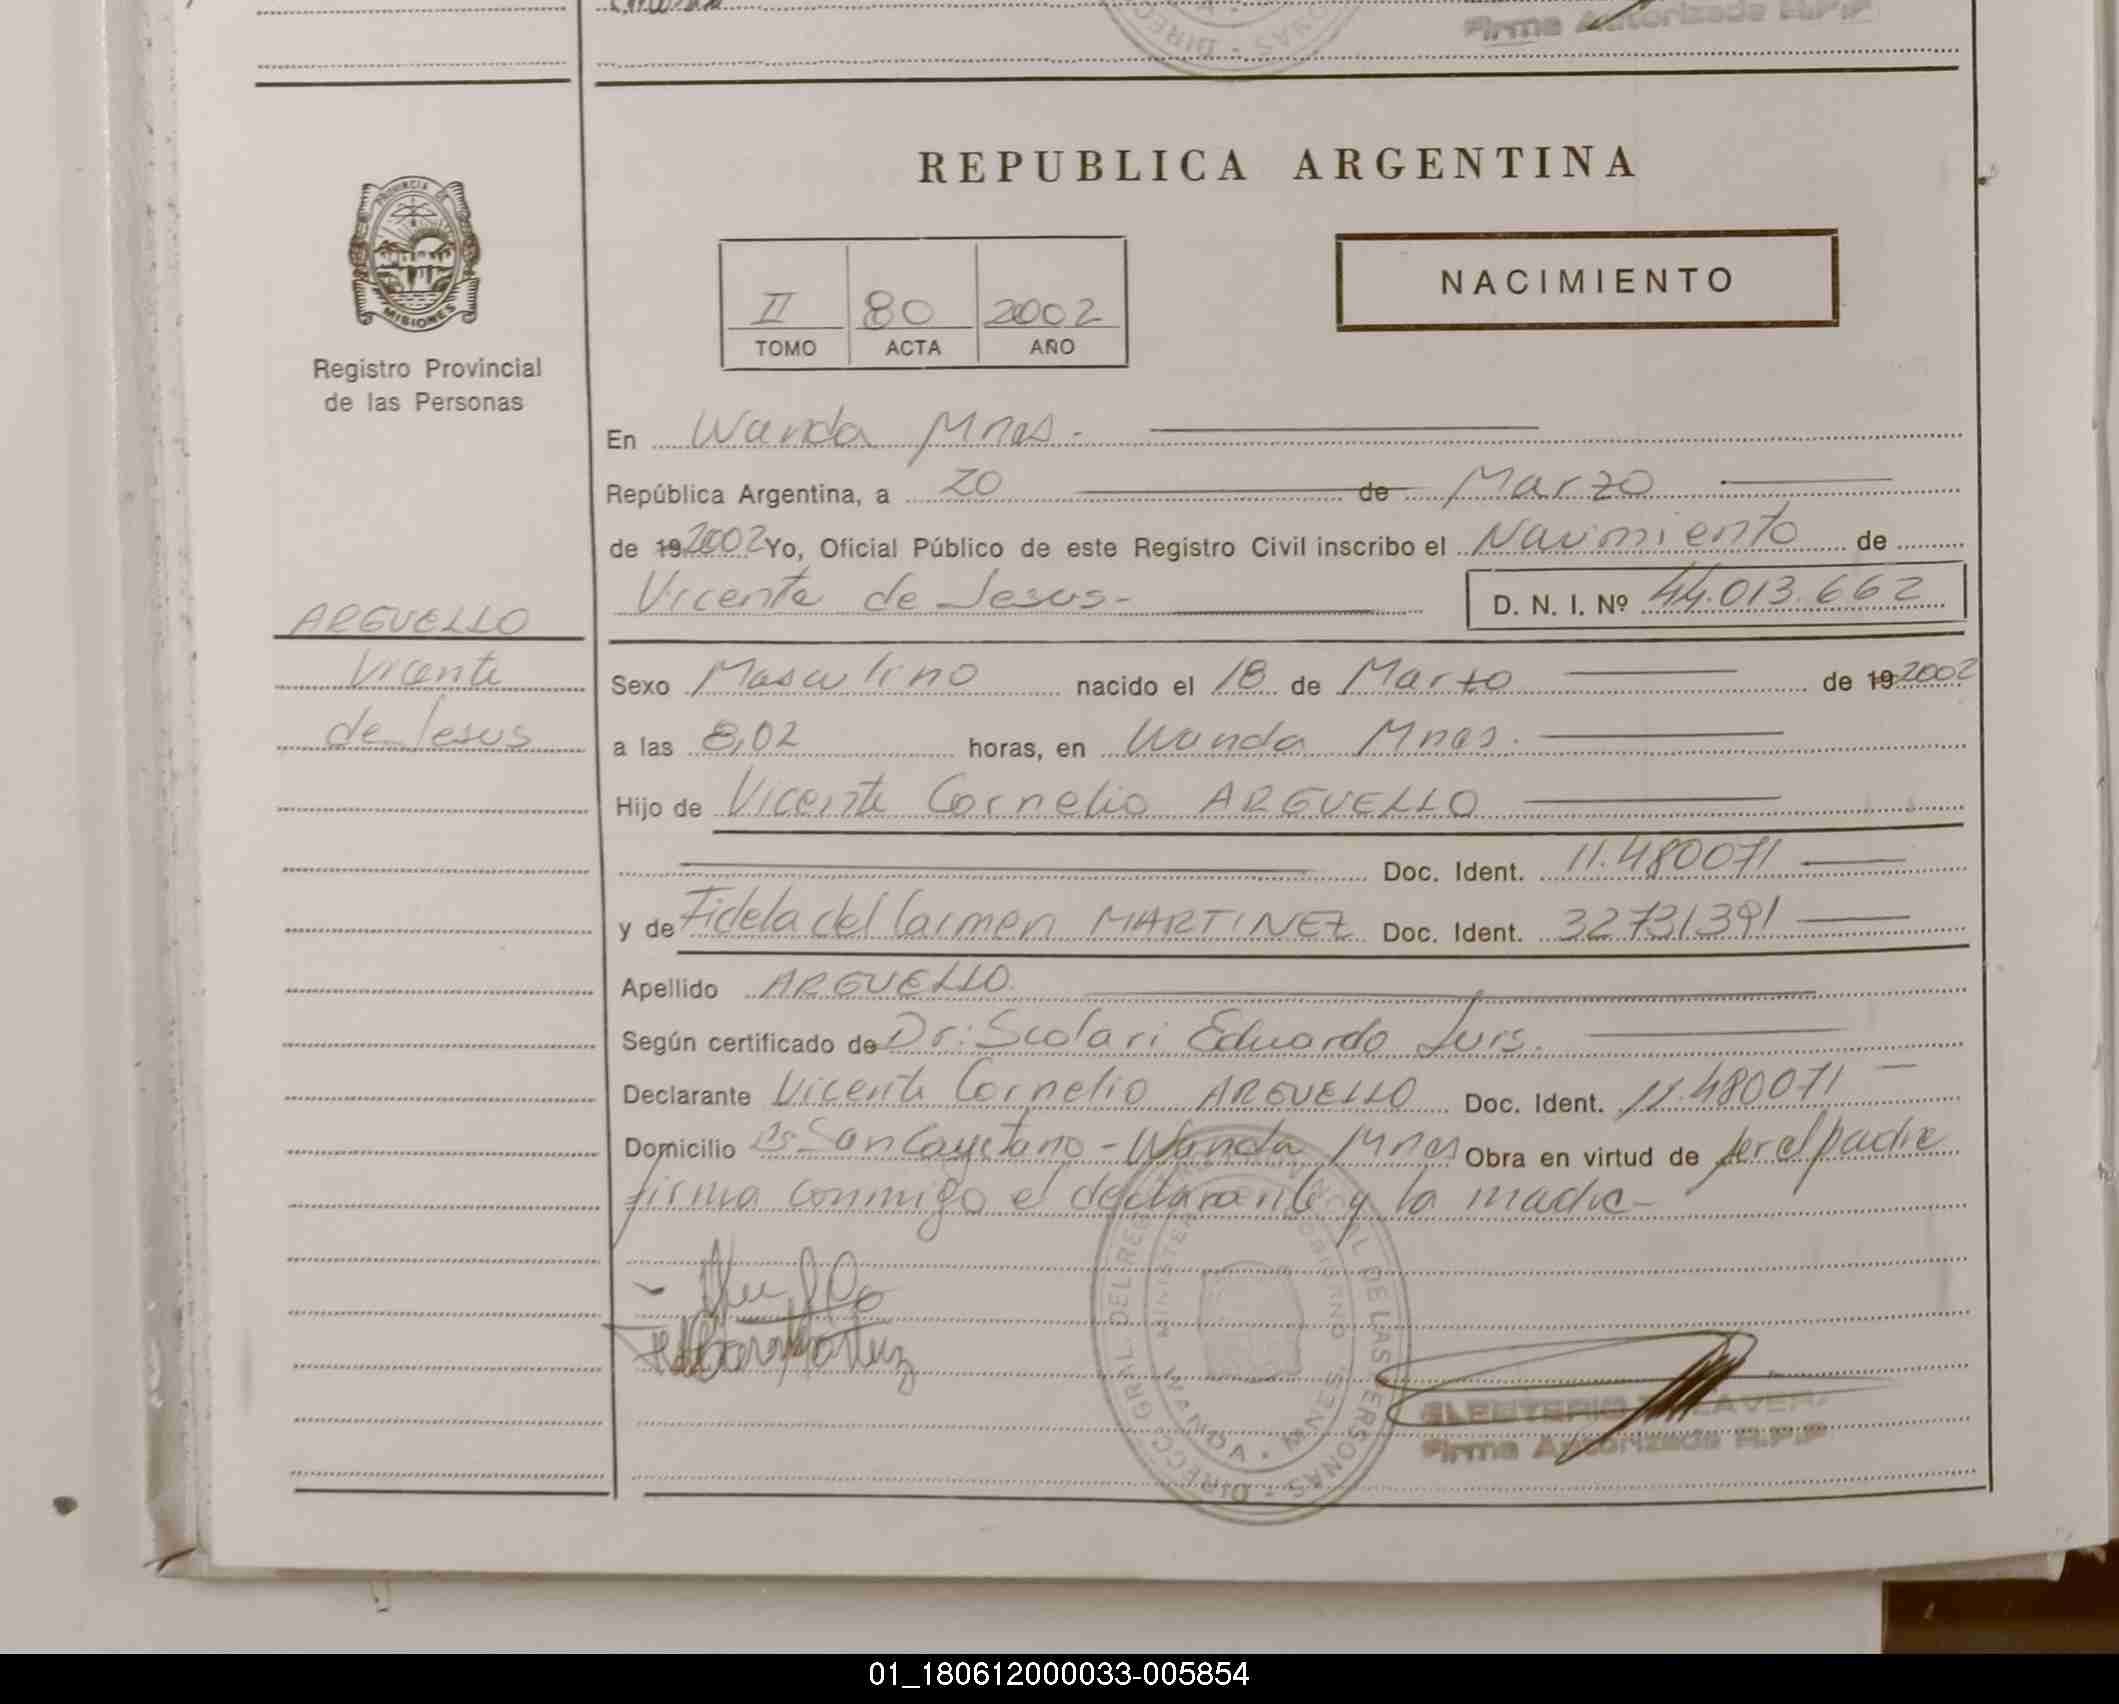 Firma Autorizada R.P.P
REPUBLICA ARGENTINA
PROVINCIA DE MISIONES
Registro Provincial
de las Personas
NACIMIENTO
II 80 2002
TOMO ACTA AÑO
En Wanda Mnes.-
República Argentina, a 20 de Marzo
de 19 2002 Yo, Oficial Público de este Registro Civil inscribo el Nacimiento de
Vicente de Jesus- D. N. I. Nº 44.013.662
ARGUELLO
Vicente
de Jesus
Sexo Masculino nacido el 18 de Marzo de 19 2002
a las 8,02 horas, en Wanda Mnes.
Hijo de Vicente Cornelio ARGUELLO
Doc. Ident. 11.480071
y de Fidela del Carmen MARTINEZ Doc. Ident. 32731391
Apellido ARGUELLO
Según certificado de Dr: Scolari Eduardo Luis.
Declarante Vicente Cornelio ARGUELLO Doc. Ident. 11.480071
Domicilio Bº San Cayetano - Wanda Mnes Obra en virtud de ser el padre
firma conmigo el declarante y la madre-
DIRECC. GRAL. DEL REG. PROVINCIAL DE LAS PERSONAS
WANDA - MNES.
Firma Autorizada R.P.P
01_180612000033-005854